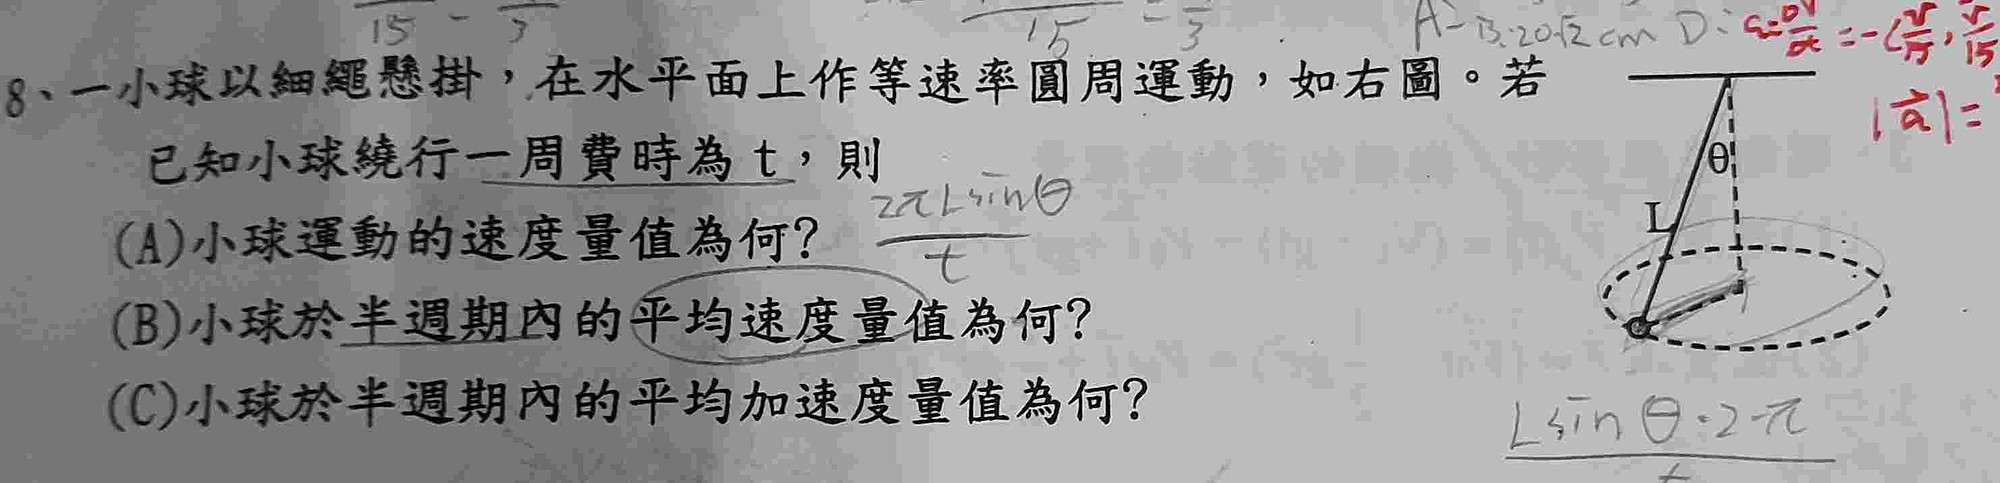 15 - 3
15 = 3
A- B.20√2 cm D:
8、一小球以細繩懸掛，在水平面上作等速率圓周運動，如右圖。若
|a|=
已知小球繞行一周費時為 t，則
θ
2πLsinθ
(A)小球運動的速度量值為何?
t
L
(B)小球於半週期內的平均速度量值為何?
(C)小球於半週期內的平均加速度量值為何?
Lsinθ·2π
t